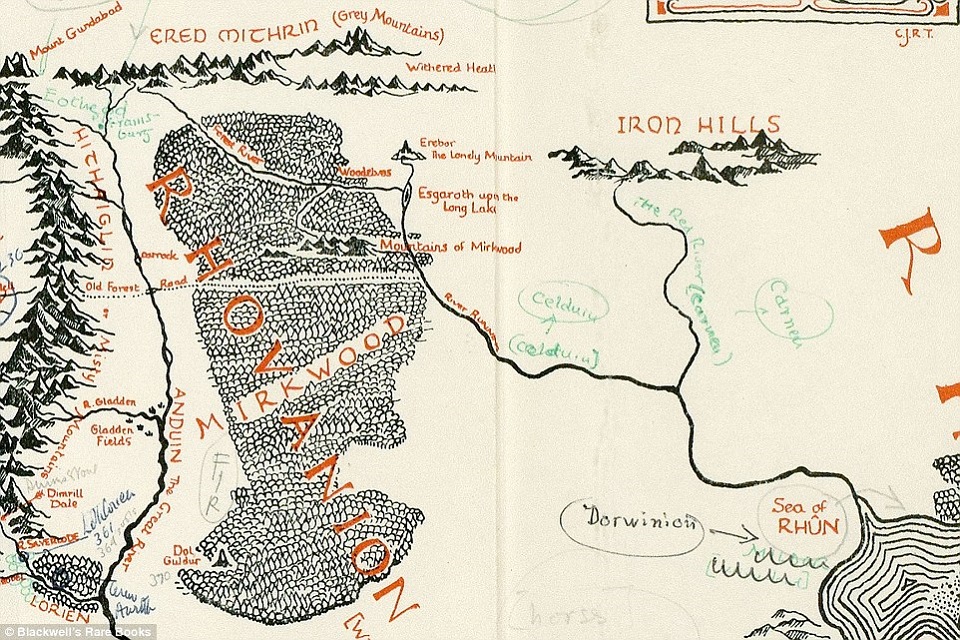 Mount Gundabad
ERED MITHRIN (Grey Mountains)
C.J.R.T.
Withered Heath
Eothed
Framsburg
IRON HILLS
HITHAIGLIR or Misty Mountains
Forest River
Woodelves
Erebor
The Lonely Mountain
Esgaroth upon the
Long Lake
Mountains of Mirkwood
Carrock
Old Forest Road
River Running
The Red River (Carnen)
Celduin
(Celduin)
Carnen
R
RHOVANION
MIRKWOOD
R. Gladden
Gladden
Fields
ANDUIN The Great River
FIR
Dimrill
Dale
Lothlorien
361
R. SILVERLODE
Dol
Guldur
390
LORIEN
Dorwinion
Sea of
RHÛN
horse
[W
© Blackwell's Rare Books